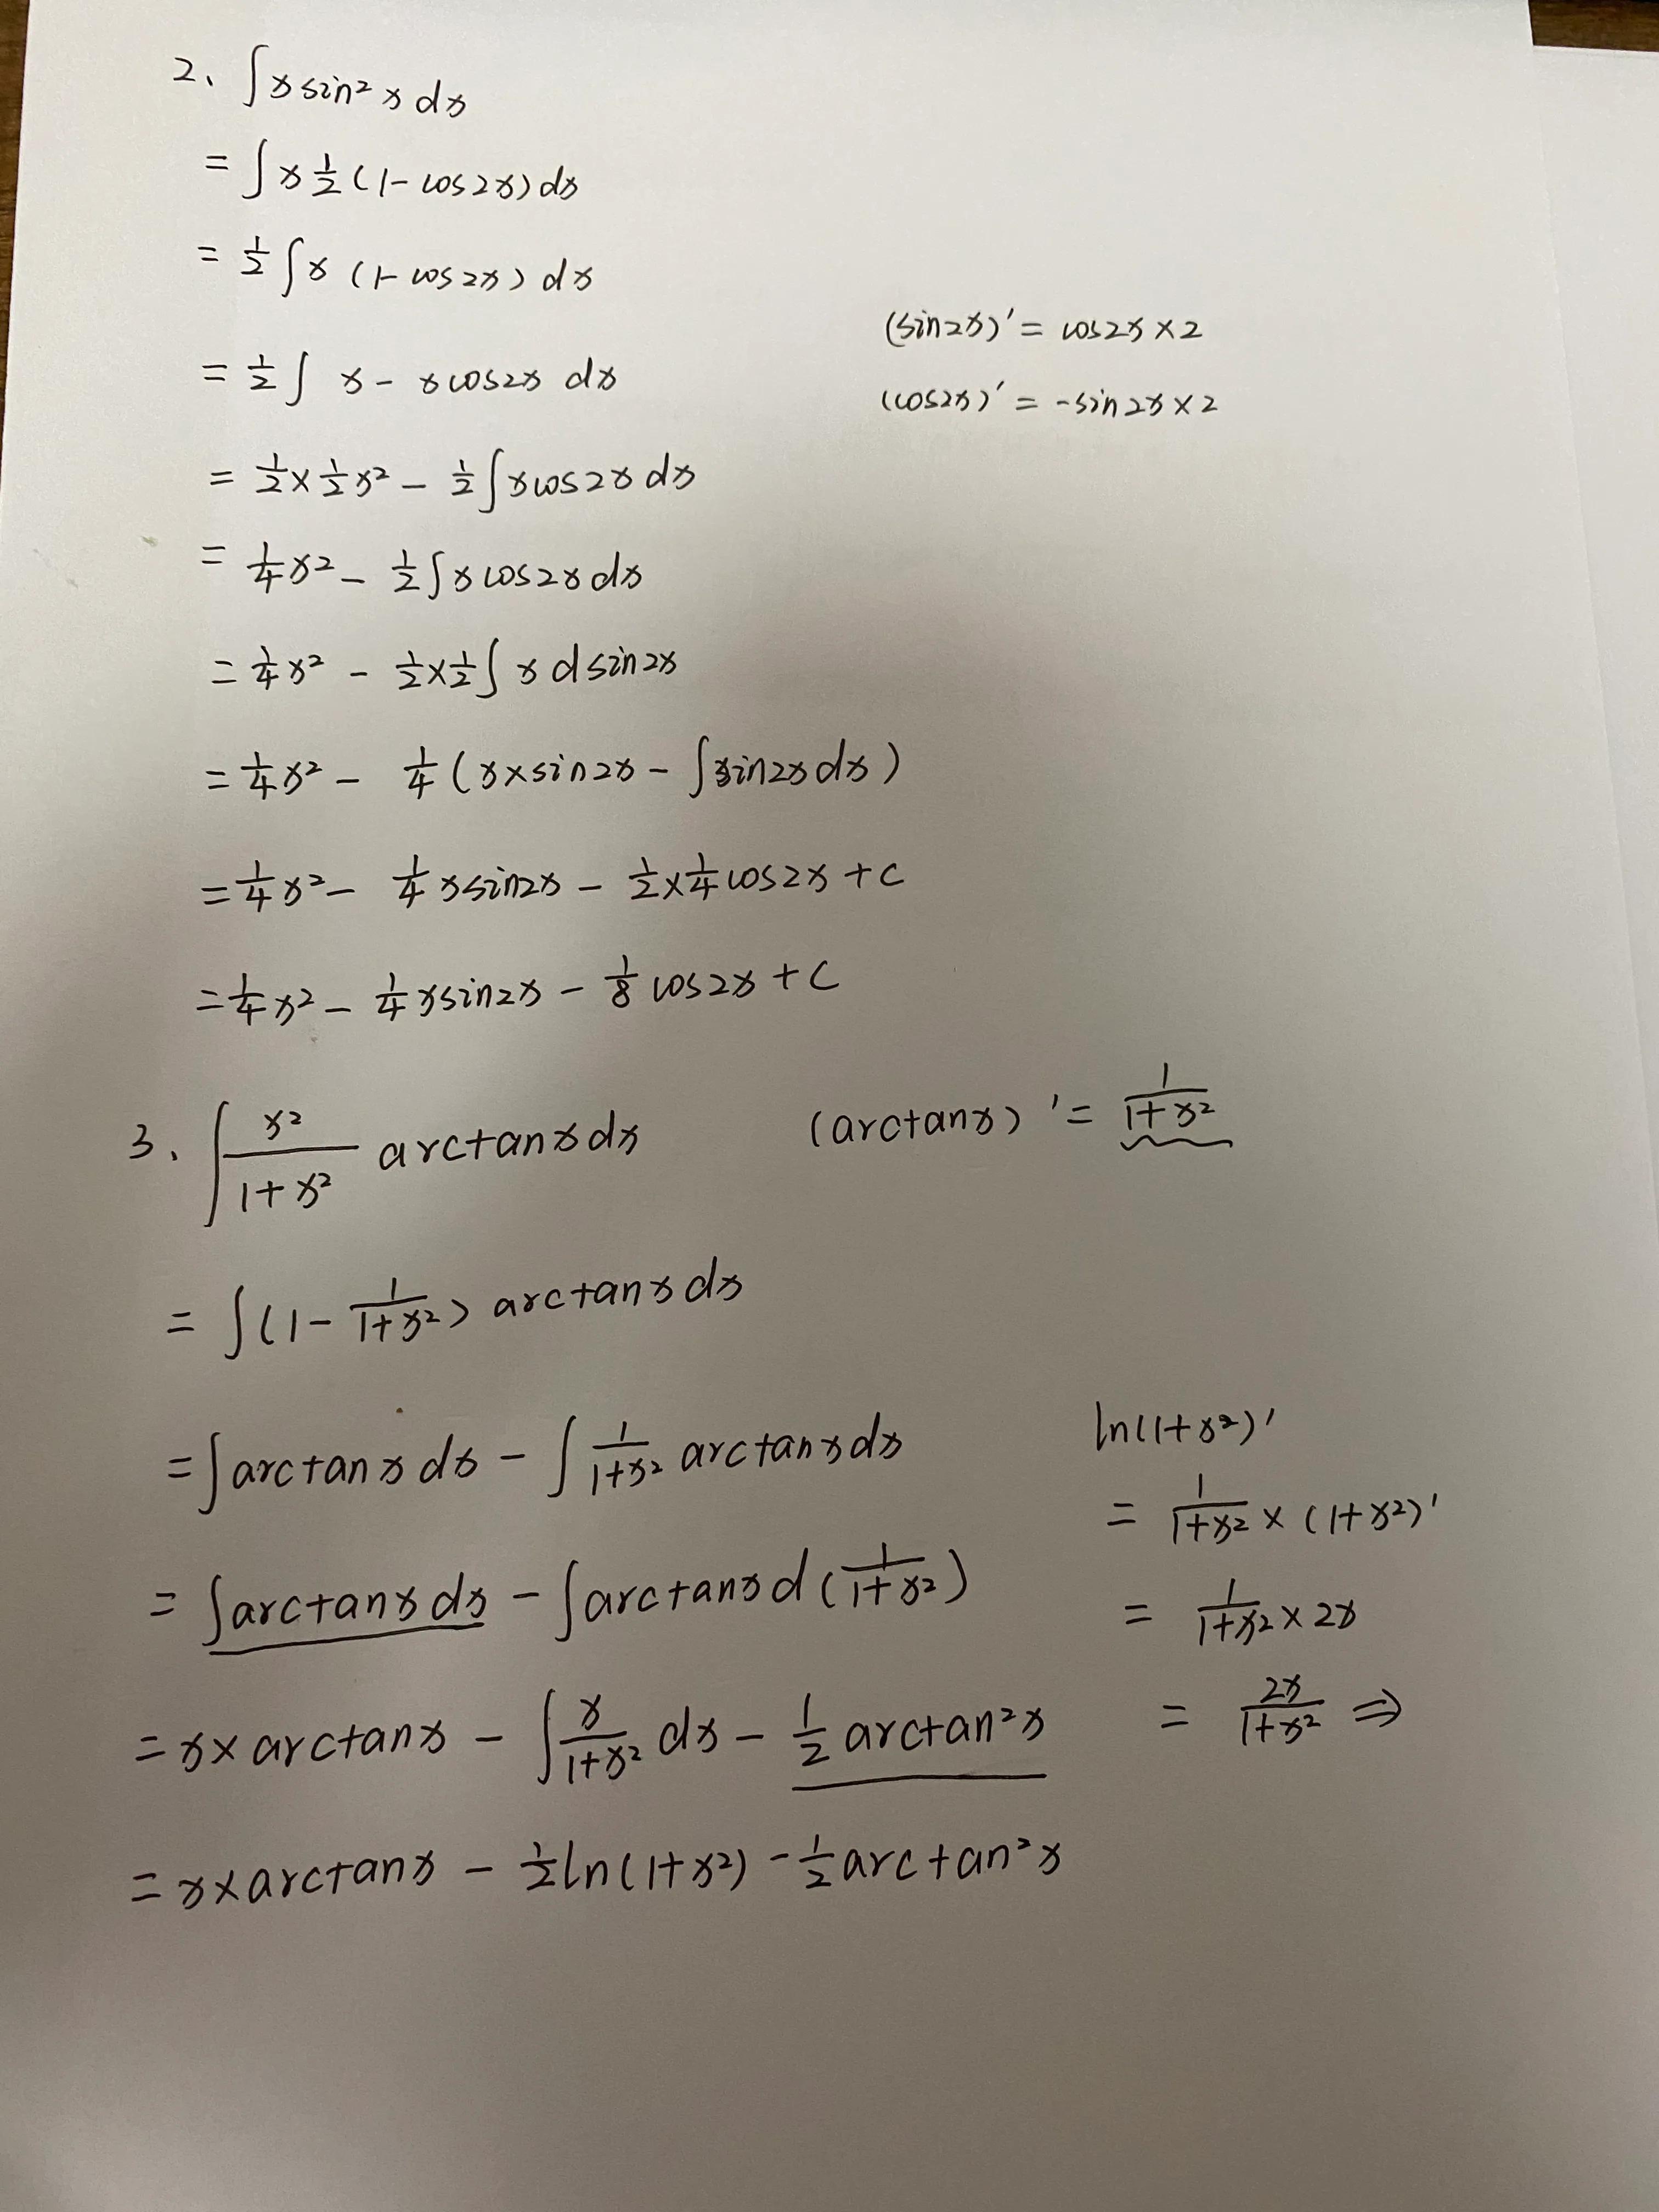 2、∫x sin² x dx
= ∫x ½ (1- cos2x) dx
= ½ ∫x (1- cos2x) dx
(sin2x)′ = cos2x × 2
= ½ ∫ x - x cos2x dx
(cos2x)′ = -sin2x × 2
= ½ × ½ x² - ½ ∫x cos2x dx
= ¼ x² - ½ ∫x cos2x dx
= ¼ x² - ½ × ½ ∫ x d sin2x
= ¼ x² - ¼ (x × sin2x - ∫sin2x dx)
= ¼ x² - ¼ x sin2x - ½ × ¼ cos2x + C
= ¼ x² - ¼ x sin2x - ⅛ cos2x + C
3、∫ x²/(1+x²) arctanx dx
(arctanx)′ = 1/(1+x²)
= ∫(1 - 1/(1+x²)) arctanx dx
= ∫arctanx dx - ∫ 1/(1+x²) arctanx dx
ln(1+x²)′
= 1/(1+x²) × (1+x²)′
= ∫arctanx dx - ∫arctanx d(1/(1+x²))
= 1/(1+x²) × 2x
= x × arctanx - ∫ x/(1+x²) dx - ½ arctan²x
= 2x/(1+x²) ⇒
= x × arctanx - ½ ln(1+x²) - ½ arctan²x